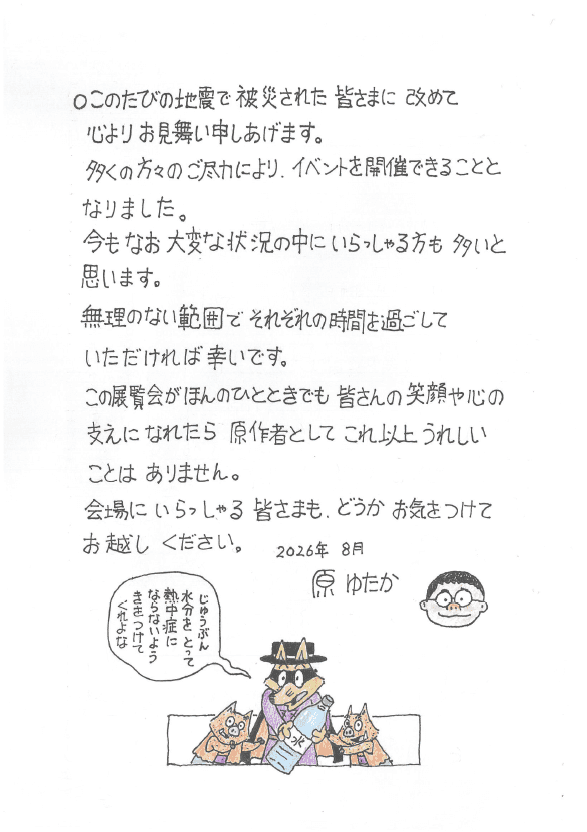 ○このたびの地震で被災された皆さまに 改めて
心より お見舞い申しあげます。
多くの方々のご尽力により、イベントを開催できることと
なりました。
今もなお 大変な状況の中にいらっしゃる方も 多いと
思います。
無理のない範囲で それぞれの時間を過ごして
いただければ 幸いです。
この展覧会がほんのひとときでも 皆さんの 笑顔や心の
支えに なれたら 原作者として これ以上 うれしい
ことは ありません。
会場に いらっしゃる 皆さまも、どうか お気をつけて
お越し ください。
2026年 8月
原 ゆたか
じゅうぶん
水分を とって
熱中症に
ならないよう
きをつけて
くれよな
水